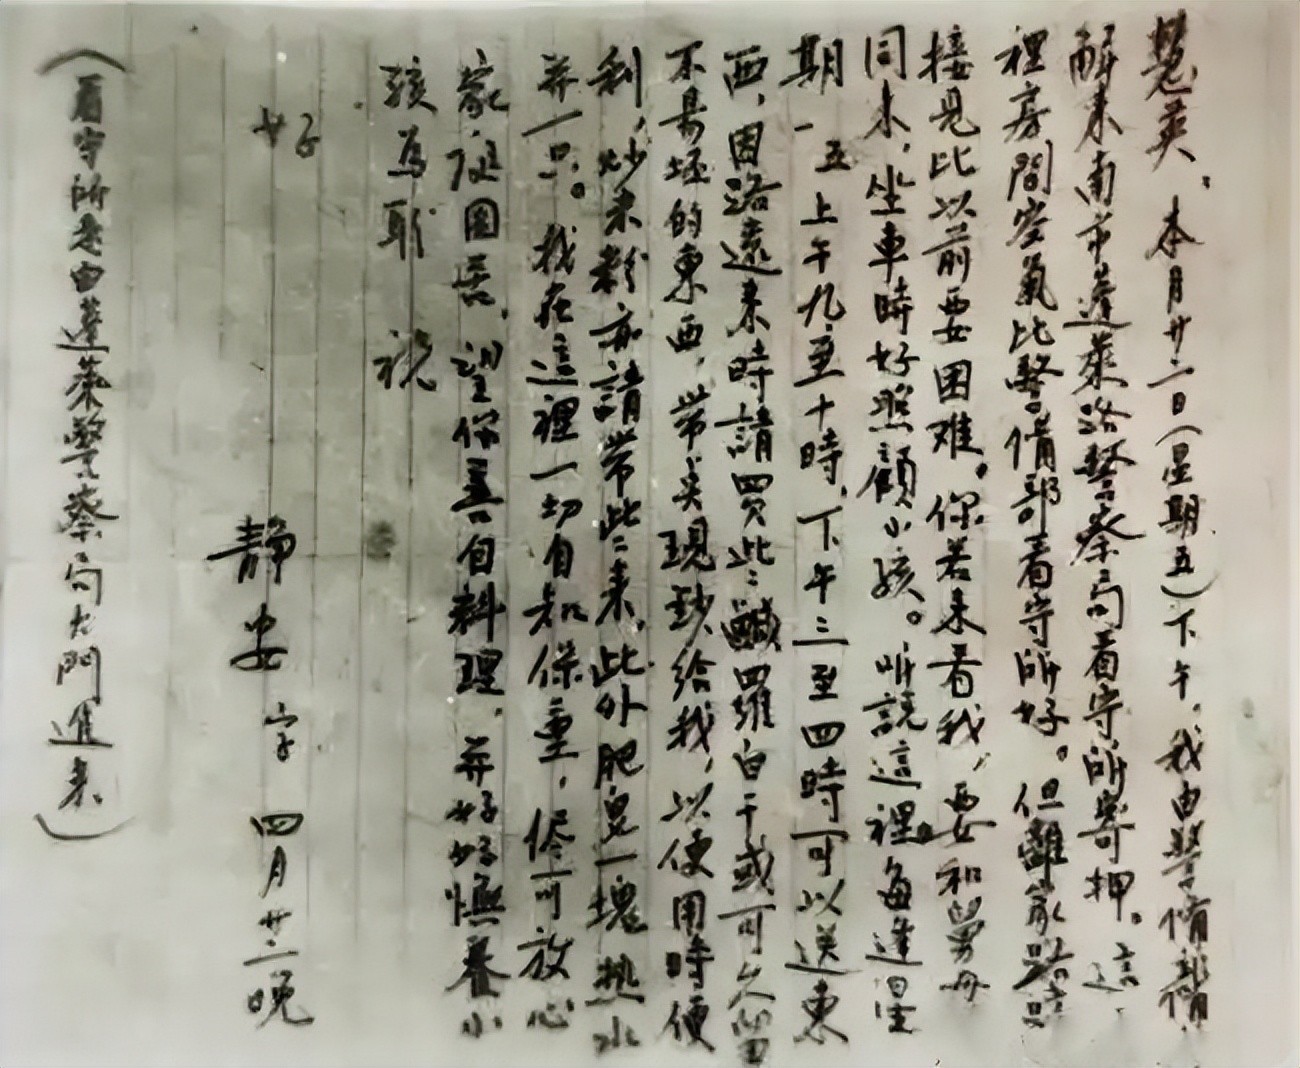 慧英、本月廿二日(星期五)下午,我由警備部
解來南市蓬萊路警察局看守所寄押。這
裡房間空氣比警備部看守所好。但離家路遠
接見比以前要困难。你若來看我,要和舅母
同來,坐車時好照顧小孩。听說這裡每逢星
期一、五上午九至十時,下午三至四時可以送東
西,因路遠來時請買些鹹羅白干或可久留
不易坯的東西,带
現鈔給我,以便用時便
利,炒米粉亦請带些來,此外肥皂一塊熱水
并一只。我在這裡一切自知保重,儘可放心
家庭困苦,望你善自料理,并好好撫養小
孩為盼 祝
好
静安 字 四月廿二晚
(看守所是由蓬萊警察局大門進來)